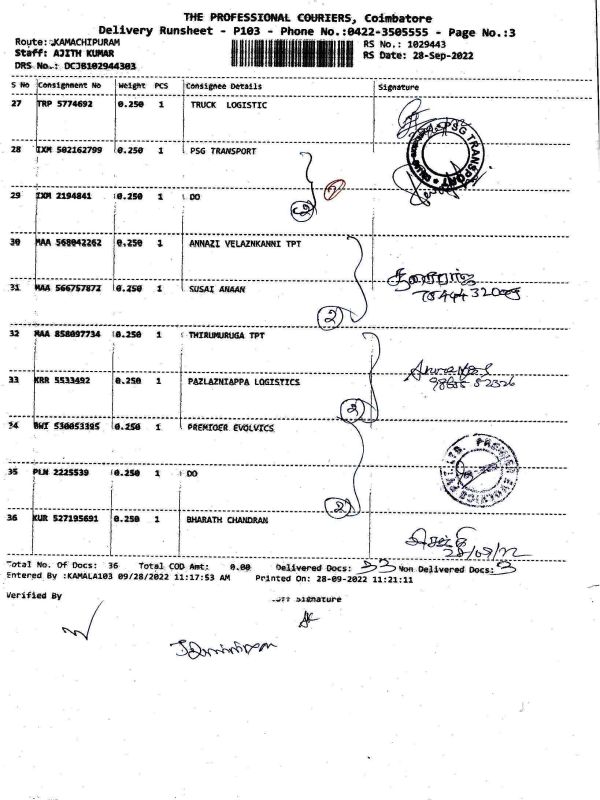 THE PROFESSIONAL COURIERS, Coimbatore
Delivery Runsheet - P103 - Phone No.:0422-3505555 - Page No.:3
Route: KAMACHIPURAM
RS No.: 1029443
Staff: AJITH KUMAR
RS Date: 28-Sep-2022
DRS No.: DCJB102944303
S No Consignment No Weight PCS Consignee Details Signature
27 TRP 5774692 0.250 1 TRUCK LOGISTIC
28 IXM 502162799 0.250 1 PSG TRANSPORT
PSG TRANSPORT
29 IXM 2194841 0.250 1 DO
2
30 MAA 568042262 0.250 1 ANNAZI VELAZNKANNI TPT
31 MAA 566757872 0.250 1 SUSAI ANAAN
2
32 MAA 858097734 0.250 1 THIRUMURUGA TPT
33 KRR 5533492 0.250 1 PAZLAZNIAPPA LOGISTICS
2
34 BWI 530053395 0.250 1 PREMIOER EVOLVICS
PREMIER EVOLVICS PVT. LTD.
35 PLN 2225539 0.250 1 DO
2
36 KUR 527195691 0.250 1 BHARATH CHANDRAN
28/09/22
Total No. Of Docs: 36 Total COD Amt: 0.00 Delivered Docs: 33 Non Delivered Docs: 3
Entered By :KAMALA103 09/28/2022 11:17:53 AM Printed On: 28-09-2022 11:21:11
Verified By Signature